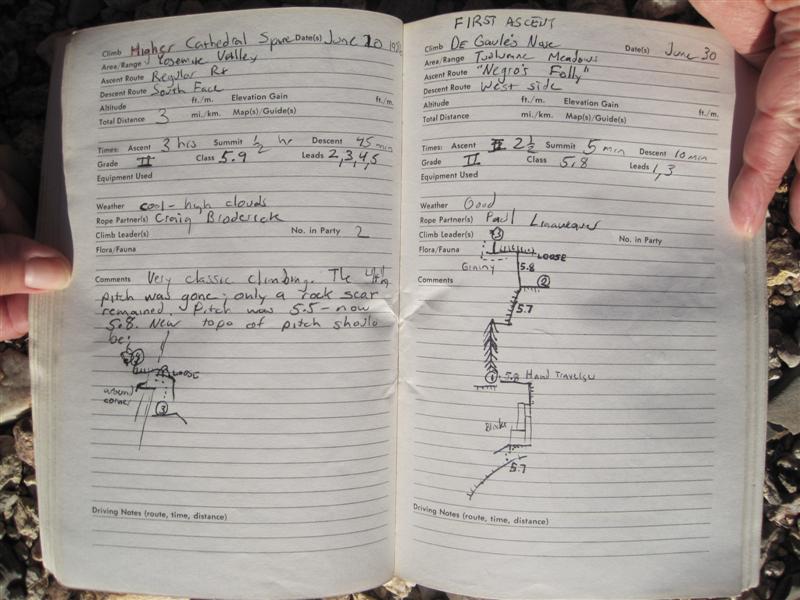 Climb Higher Cathedral Spire Date(s) June 20
Area/Range Yosemite Valley
Ascent Route Regular Rt
Descent Route South Face
Altitude ft./m. Elevation Gain ft./m.
Total Distance 3 mi./km. Map(s)/Guide(s)
Times: Ascent 3 hrs Summit ½ hr Descent 45 min
Grade II Class 5.9 Leads 2,3,4,5
Equipment Used
Weather cool - high clouds
Rope Partner(s) Craig Broderick
Climb Leader(s) No. in Party 2
Flora/Fauna
Comments Very classic climbing. The
pitch was gone; only a rock scar
remained. Pitch was 5.5 - now
5.8. New topo of pitch should
be:
LOOSE
around
corner
3
Driving Notes (route, time, distance)
FIRST ASCENT
Climb De Gaule's Nose Date(s) June 30
Area/Range Tuolumne Meadows
Ascent Route "Negro's Folly"
Descent Route West side
Altitude ft./m. Elevation Gain ft./m.
Total Distance mi./km. Map(s)/Guide(s)
Times: Ascent 2½ Summit 5 min Descent 10 min
Grade II Class 5.8 Leads 1,3
Equipment Used
Weather Good
Rope Partner(s) Paul
Climb Leader(s) No. in Party
Flora/Fauna
3
LOOSE
Grainy 5.8
Comments
2
5.7
1 5.8 Hand Traverse
Blocks
5.7
Driving Notes (route, time, distance)